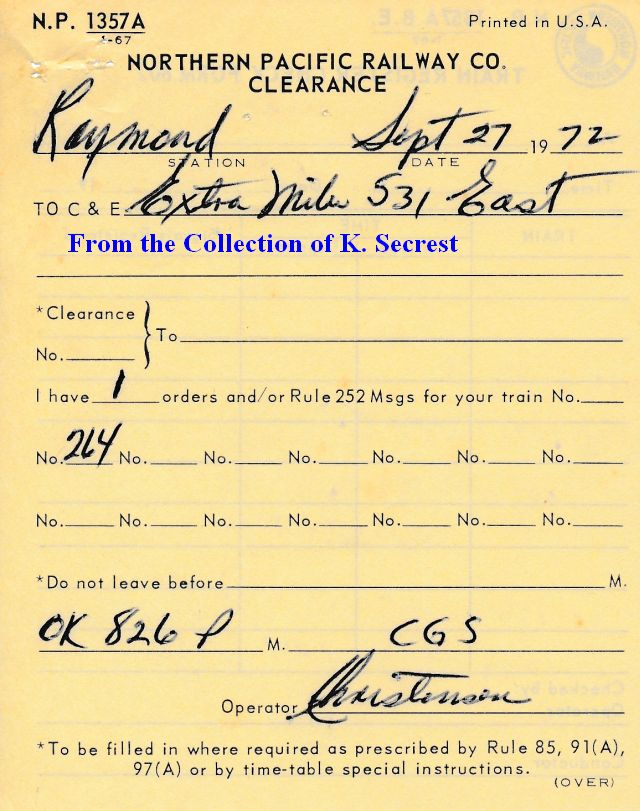 N.P. 1357A Printed in U.S.A.
-67
NORTHERN PACIFIC RAILWAY CO.
CLEARANCE
Raymond Sept 27 1972
STATION DATE
TO C & E Extra Milw 531 East
From the Collection of K. Secrest
*Clearance
To
No.
I have 1 orders and/or Rule 252 Msgs for your train No.
No. 264 No. No. No. No. No. No.
No. No. No. No. No. No. No.
*Do not leave before M.
OK 826 P M. CGS
Operator Christensen
*To be filled in where required as prescribed by Rule 85, 91(A),
97(A) or by time-table special instructions.
(OVER)